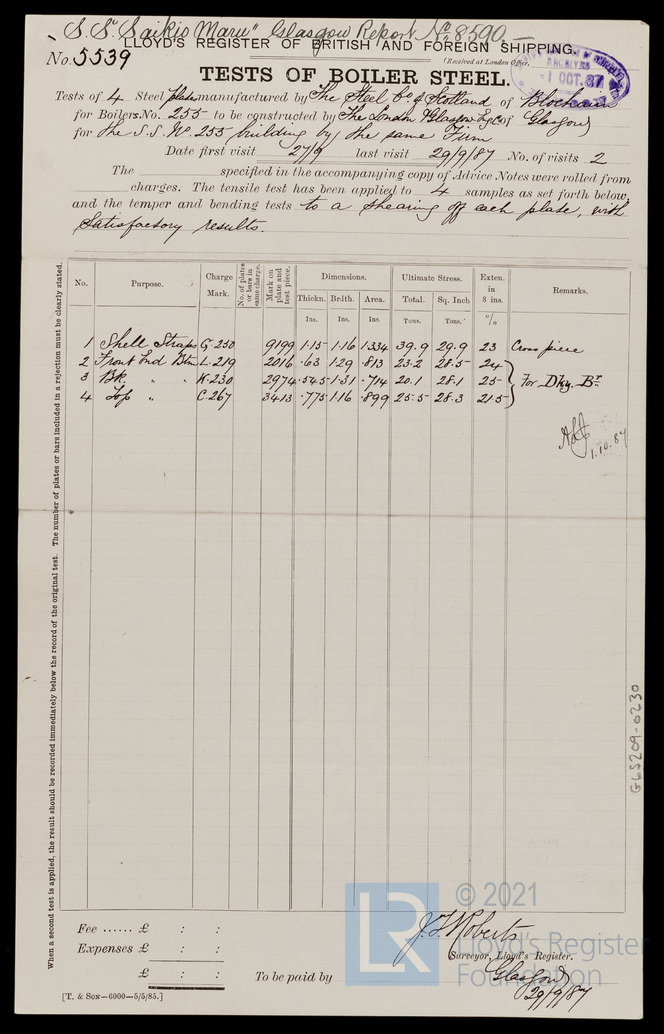 "S.S. "Saikio Maru" Glasgow Report No 8590
LLOYD'S REGISTER OF BRITISH AND FOREIGN SHIPPING.
No. 5539
(Received at London Office,
1 OCT. 87
TESTS OF BOILER STEEL.
Tests of 4 Steel plates manufactured by The Steel Co of Scotland of Blochairn
for Boilers No. 255 to be constructed by The London & Glasgow Eg Co of Glasgow
for the S.S. No. 255 building by the same Firm
Date first visit 27/9 last visit 29/9/87 No. of visits 2
The specified in the accompanying copy of Advice Notes were rolled from
charges. The tensile test has been applied to 4 samples as set forth below,
and the temper and bending tests to a shearing off each plate, with
satisfactory results.
No. Purpose. Charge Mark. No. of plates or bars in same charge. Mark on plate and test piece. Dimensions. Ultimate Stress. Exten. in 8 ins. Remarks.
Thickn. Brdth. Area. Total. Sq. Inch
Ins. Ins. Ins. Tons. Tons. %
1 Shell Straps G.230 9199 1.15 1.16 1.334 39.9 29.9 23 Cross piece
2 Front End Btm L.219 2016 .63 1.29 .813 23.2 28.5 24
3 Bk. " " K.230 2974 .545 1.31 .714 20.1 28.1 25 For Dky. Br
4 Top " C.267 3413 .775 1.16 .899 25.5 28.3 21.5
1.10.87
When a second test is applied, the result should be recorded immediately below the record of the original test. The number of plates or bars included in a rejection must be clearly stated.
GLS209-0230
Fee ...... £ : :
Expenses £ : :
£ : :
To be paid by
J. T. Roberts
Surveyor, Lloyd's Register.
Glasgow
29/9/87
[T. & Son—6000—5/5/85.]
LR
© 2021
Lloyd's Register
Foundation